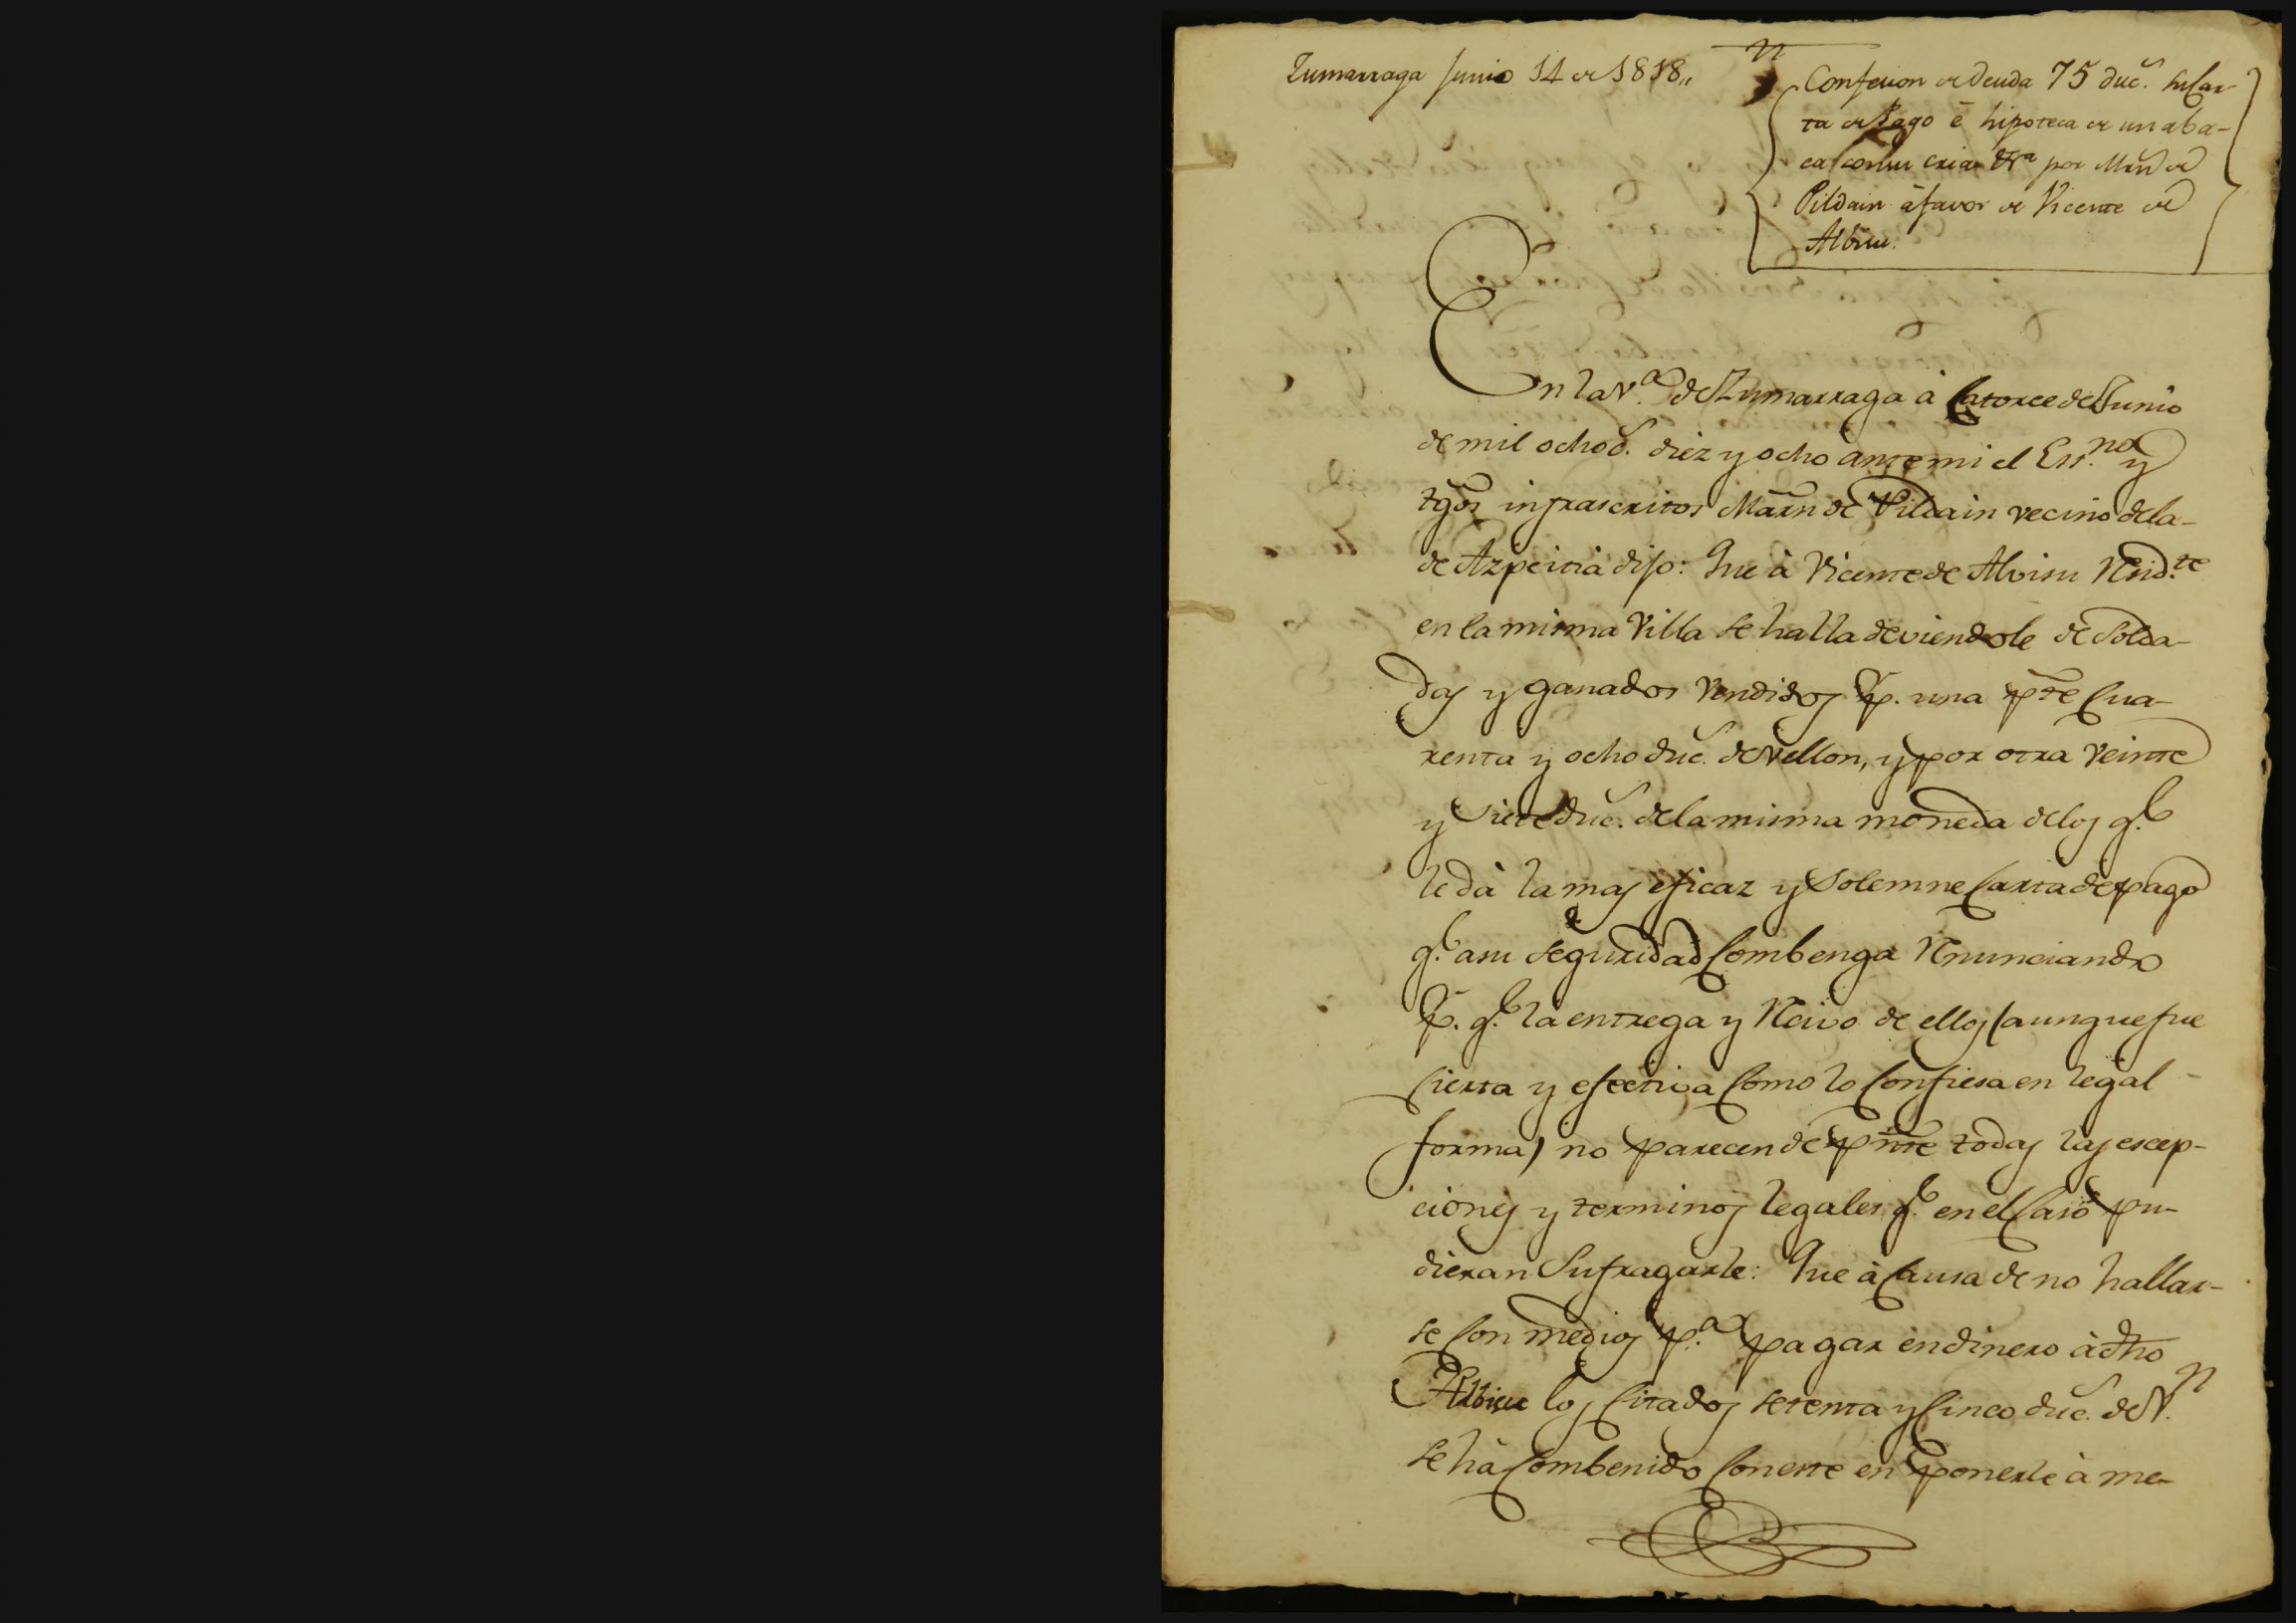 Zumarraga Junio 14 de 1818,,
Confesion de deuda 75 duc.s su Car-
ta de Pago é hipoteca de una ba-
ca con su cria &ra por Mrn de
Pildain á favor de Vicente de
Albisu.
En la V.a de Zumarraga à Catorce de Junio
de mil ochoc.s diez y ocho ante mi el Ess.no y
tgos infrascritos Marn de Pildain vecino dela-
de Azpeitia dijo: Que à Vicente de Alvisu Resid.te
en la misma Villa se halla deviendole de Solda-
das y ganados Vendidos p. una pte Cua-
renta y ocho duc.s de Vellon, y por otra Veinte
y siete duc.s de la misma moneda delos q.e
le dà la mas eficaz y Solemne Carta de pago
q.e a su seguridad Combenga Renunciando
p. q.e la entrega y Recivo de ellos (aunque fue
Cierta y efectiva Como lo Confiesa en legal
forma) no parecen de pnte todas las escep-
ciones y terminos legales q.e en el Caso pu-
dieran Sufragarle: Que à Causa de no hallar-
se Con medios p.a pagar en dinero à dho
Albisu los Citados setenta y Cinco duc.s de V.n
se hà Combenido Con este en ponerle à me-